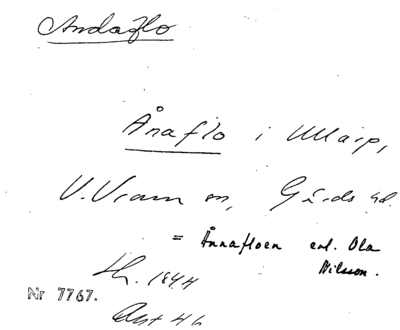 Andaflo
Ånaflo i Ullarp,
V. Vram sn, Gärds hd.
= Ånnafloen enl. Ola
Nilsson.
Lh. 1844
Nr 7767.
Akt 46